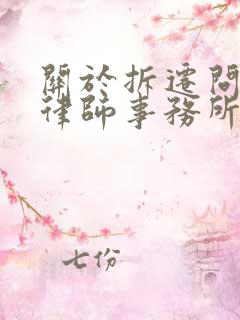 關於拆遷問
律師事務所
七份